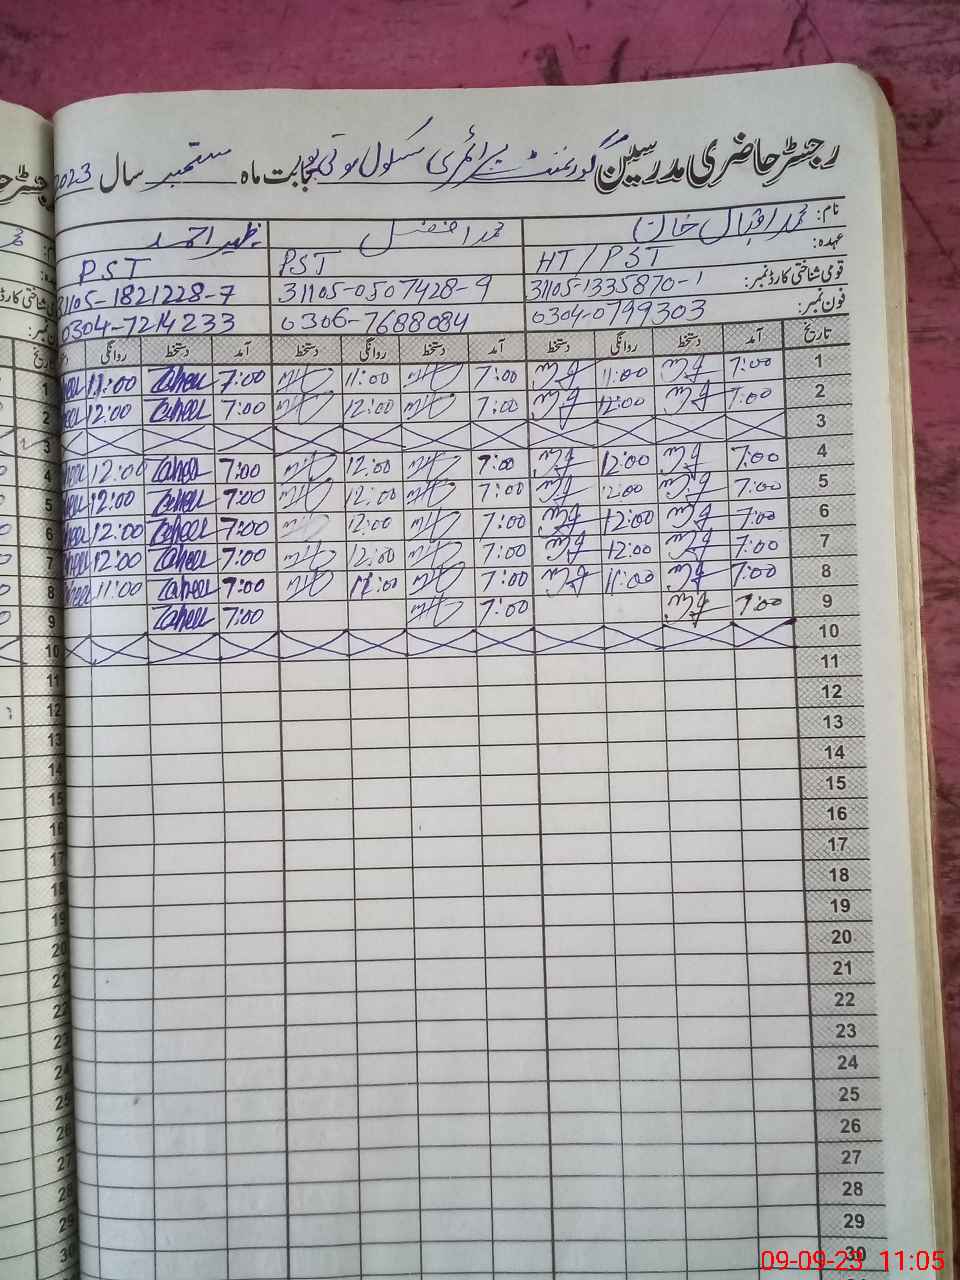 رجسٹر حاضری مدرسین گورنمنٹ پرائمری سکول موتی بابت ماہ ستمبر سال 2023
نام: محمد اقبال خان محمد افضل ظہیر احمد
عہدہ: HT/PST PST PST
قومی شناختی کارڈ نمبر: 31105-1335870-1 31105-0507428-9 31105-1821228-7
فون نمبر: 0304-0799303 0306-7688084 0304-7214233
تاریخ آمد دستخط روانگی دستخط آمد دستخط روانگی دستخط آمد دستخط روانگی
1 7:00 11:00 7:00 11:00 7:00 Zaheer 11:00
2 7:00 12:00 7:00 12:00 7:00 Zaheer 12:00
3
4 7:00 12:00 7:00 12:00 7:00 Zaheer 12:00
5 7:00 12:00 7:00 12:00 7:00 Zaheer 12:00
6 7:00 12:00 7:00 12:00 7:00 Zaheer 12:00
7 7:00 12:00 7:00 12:00 7:00 Zaheer 12:00
8 7:00 11:00 7:00 11:00 7:00 Zaheer 11:00
9 7:00 7:00 7:00 Zaheer
10
11
12
13
14
15
16
17
18
19
20
21
22
23
24
25
26
27
28
29
30
09-09-23 11:05